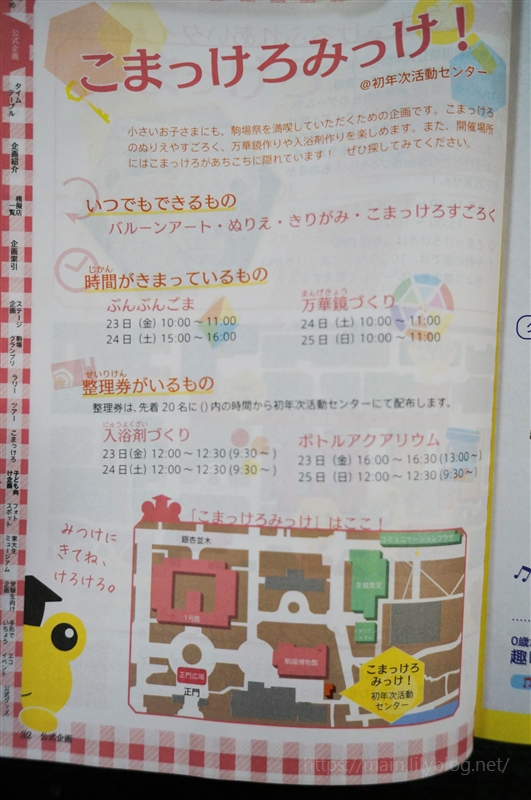 公式企画
タイムテーブル
企画紹介
模擬店一覧
企画索引
ステージ企画
駒場グランプリ
ラリー
ツアー
こまっけろ
子ども向け企画
フォトスポット
東大生ミュージアム
受験生向け企画
手形でいちょう
エコイベント
公式グッズ
こまっけろみっけ！
@初年次活動センター
小さいお子さまにも、駒場祭を満喫していただくための企画です。こまっけろ
のぬりえやすごろく、万華鏡作りや入浴剤作りを楽しめます。また、開催場所
にはこまっけろがあちこちに隠れています！ ぜひ探してみてください。
いつでもできるもの
バルーンアート・ぬりえ・きりがみ・こまっけろすごろく
じかん
時間がきまっているもの
ぶんぶんごま
23日（金）10:00～11:00
24日（土）15:00～16:00
まんげきょう
万華鏡づくり
24日（土）10:00～11:00
25日（日）10:00～11:00
せいりけん
整理券がいるもの
整理券は、先着20名に()内の時間から初年次活動センターにて配布します。
にゅうよくざい
入浴剤づくり
23日(金)12:00～12:30(9:30～)
24日(土)12:00～12:30(9:30～)
ボトルアクアリウム
23日（金）16:00～16:30(13:00～)
25日（日）12:00～12:30(9:30～)
「こまっけろみっけ」はここ！
みつけに
きてね、
けろけろ。
銀杏並木
コミュニケーションプラザ
1号館
駒場博物館
正門広場
正門
こまっけろ
みっけ！
初年次活動
センター
32 公式企画
0歳
趣
https://main.li.yalog.net/